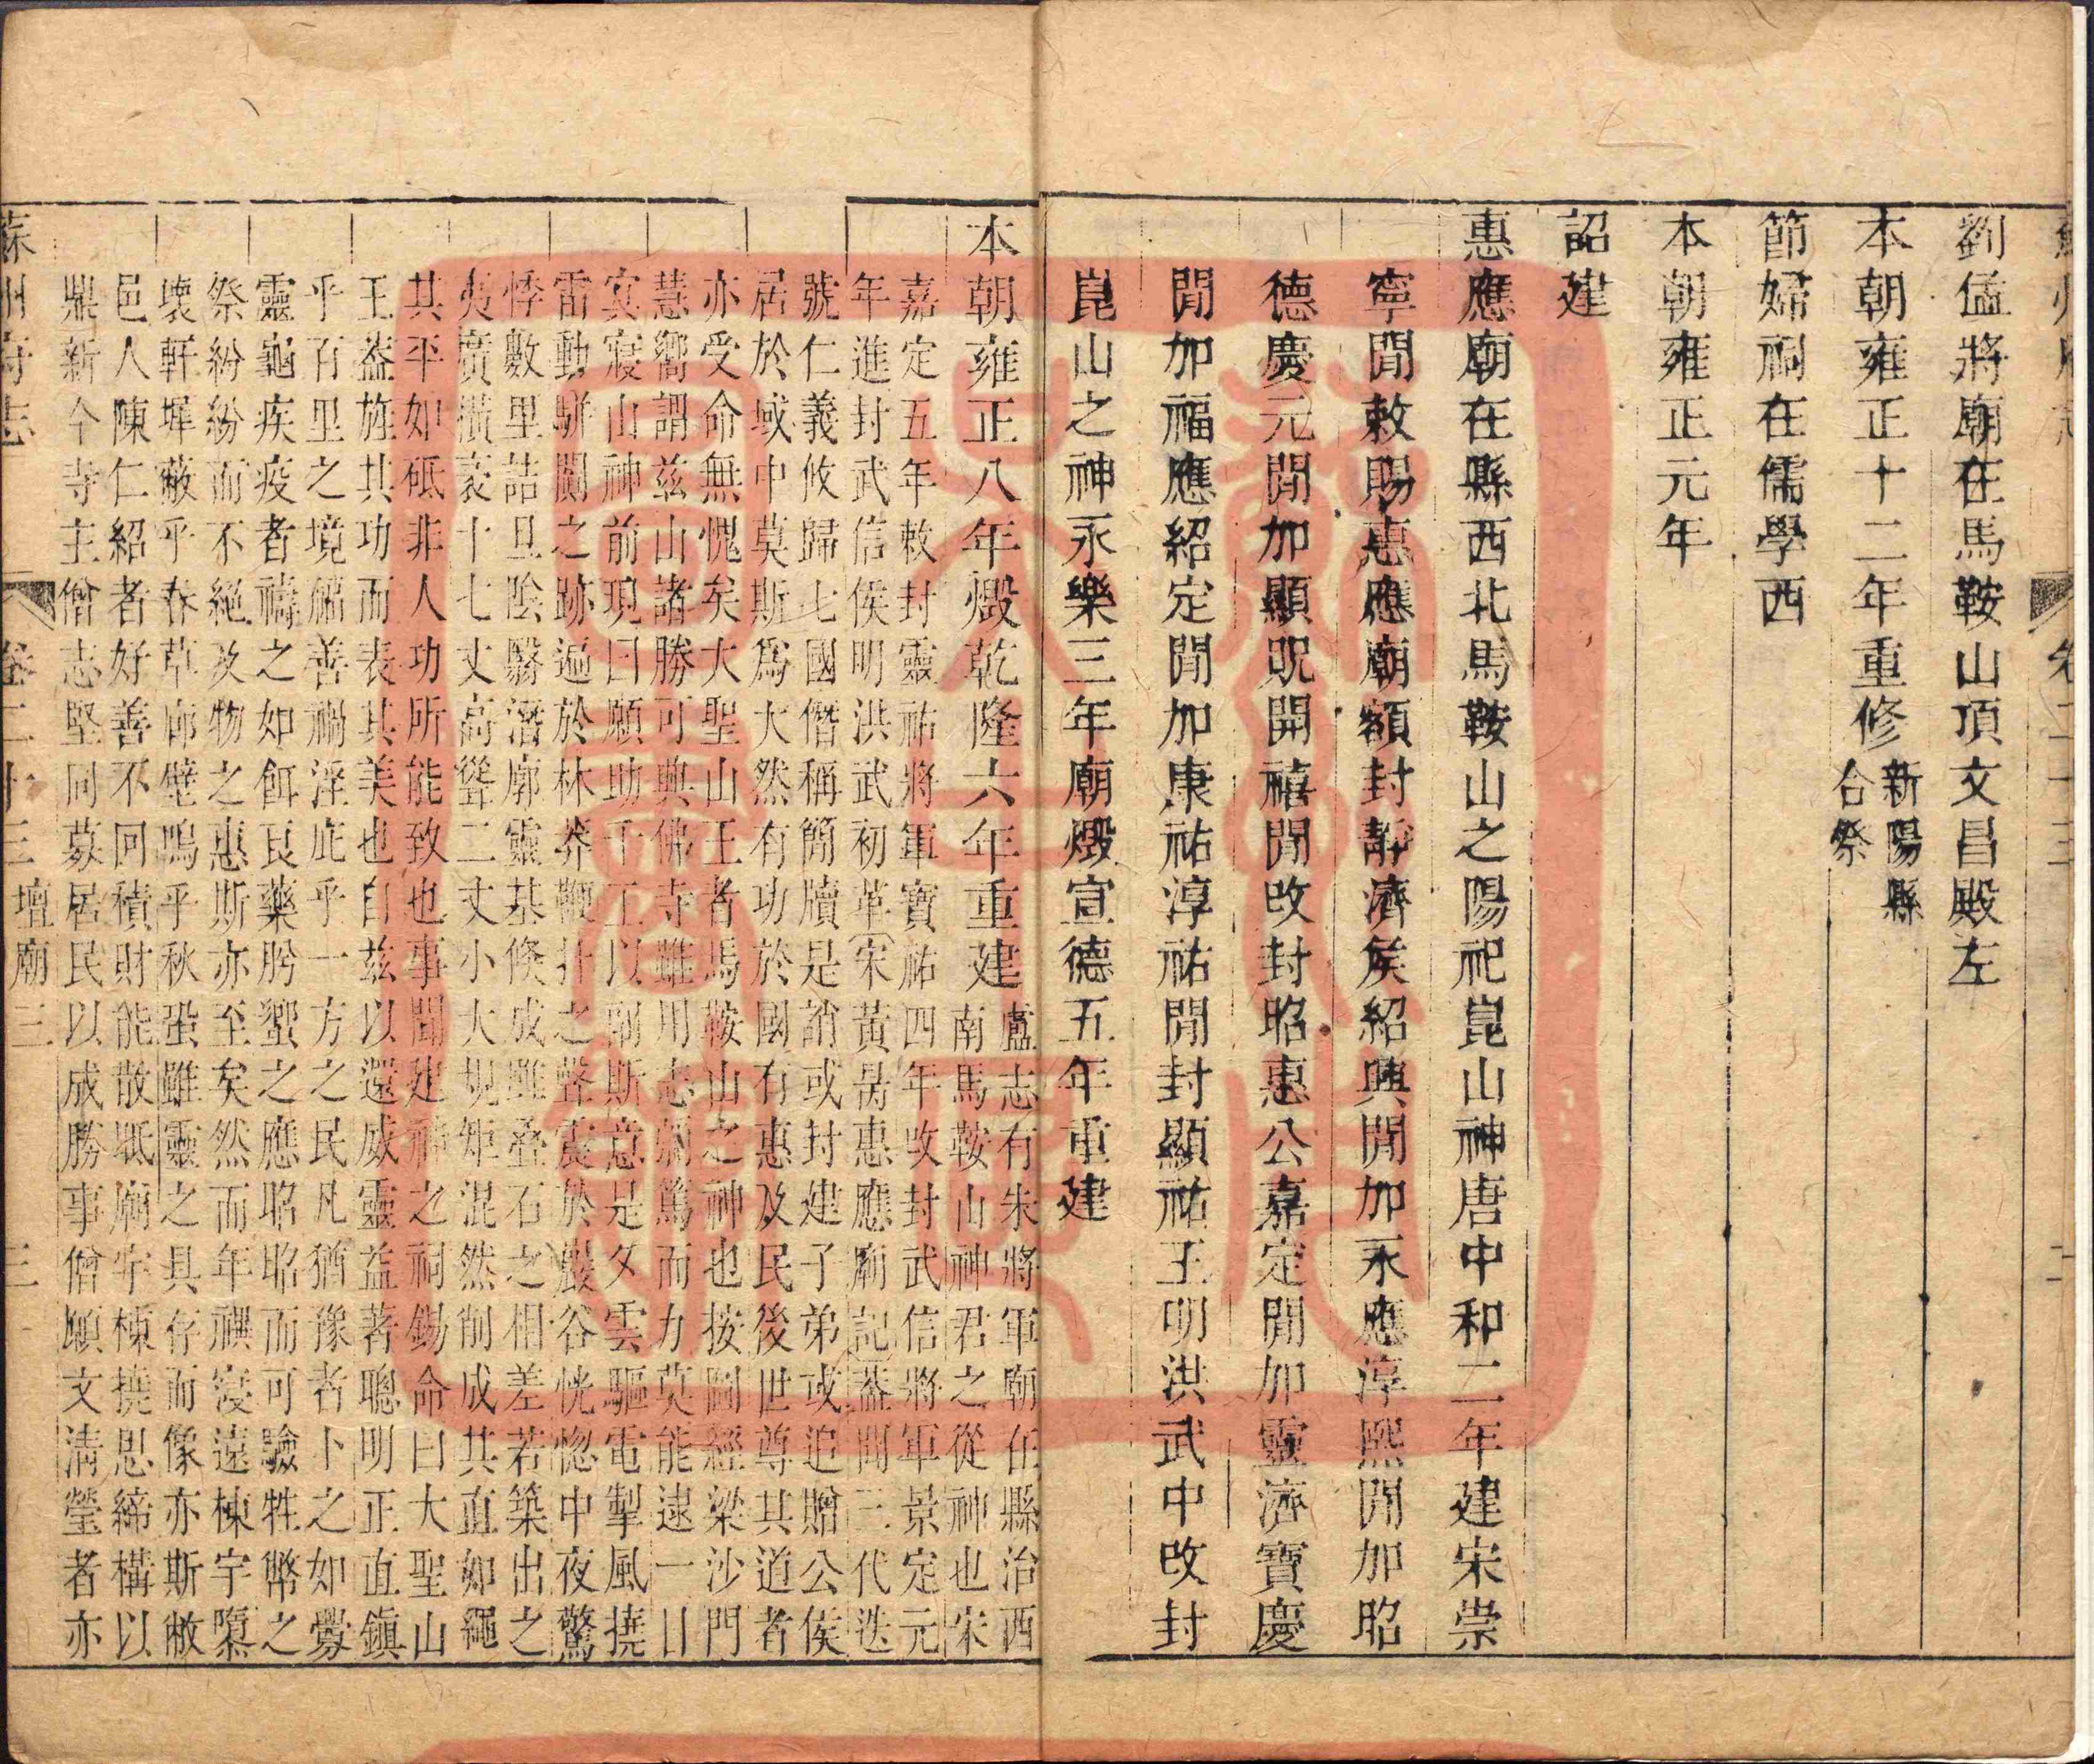 劉猛將廟在馬鞍山頂文昌殿左
本朝雍正十二年重修新陽縣
合祭
節婦祠在儒學西
本朝雍正元年
詔建
惠應廟在縣西北馬鞍山之陽祀崑山神唐中和二年建宋崇
寧閒敕賜惠應廟額封靜濟矦紹興閒加永應淳熙閒加昭
德慶元閒加顯貺開禧閒改封昭惠公嘉定閒加靈濟寶慶
閒加福應紹定閒加康祐淳祐閒封顯祐王明洪武中改封
崑山之神永樂三年廟燬宣德五年重建
本朝雍正八年燬乾隆六年重建盧志有朱將軍廟在縣治西
南馬鞍山神君之從神也宋
嘉定五年敕封靈祐將軍寶祐四年改封武信將軍景定元
年進封武信侯明洪武初革宋黃昺惠應廟記蓋聞三代迭
號仁義攸歸七國僭稱簡牘是誚或封建子弟或追贈公侯
居於域中莫斯爲大然有功於國有惠及民後世尊其道者
亦受命無愧矣大聖山王者馬鞍山之神也按圖經梁沙門
慧嚮謂茲山諸勝可興佛寺雖用志頗篤而力莫能逮一日
冥寢山神前現曰願助千工以副斯意是夕雲驅電掣風撓
雷動駢闐之跡遍於林莽鞭扑之聲震於巖谷恍惚中夜驚
悸數里詰旦陰翳潛廓靈基倏成雖疊石之相差若築出之
夷廣橫袤十七丈高聳二丈小大規矩混然削成其直如繩
其平如砥非人功所能致也事聞建神之祠錫命曰大聖山
王葢旌其功而表其美也自茲以還威靈益著聰明正直鎮
乎百里之境福善禍淫庇乎一方之民凡猶豫者卜之如靈
龜疾疫者禱之如餌良藥肹蠁之應昭昭而可驗牲幣之
祭紛紛而不絕及物之惠斯亦至矣然而年禩寖遠棟宇隳
壞軒墀蔽乎春草廊壁鳴乎秋蛩雖靈之具存而像亦斯敝
邑人陳仁紹者好善不回積財能散眡廟宇棟撓思締構以
鼎新今寺主僧志堅同募居民以成勝事僧願文清瑩者亦
蘇州府志 卷二十三 壇廟三 三